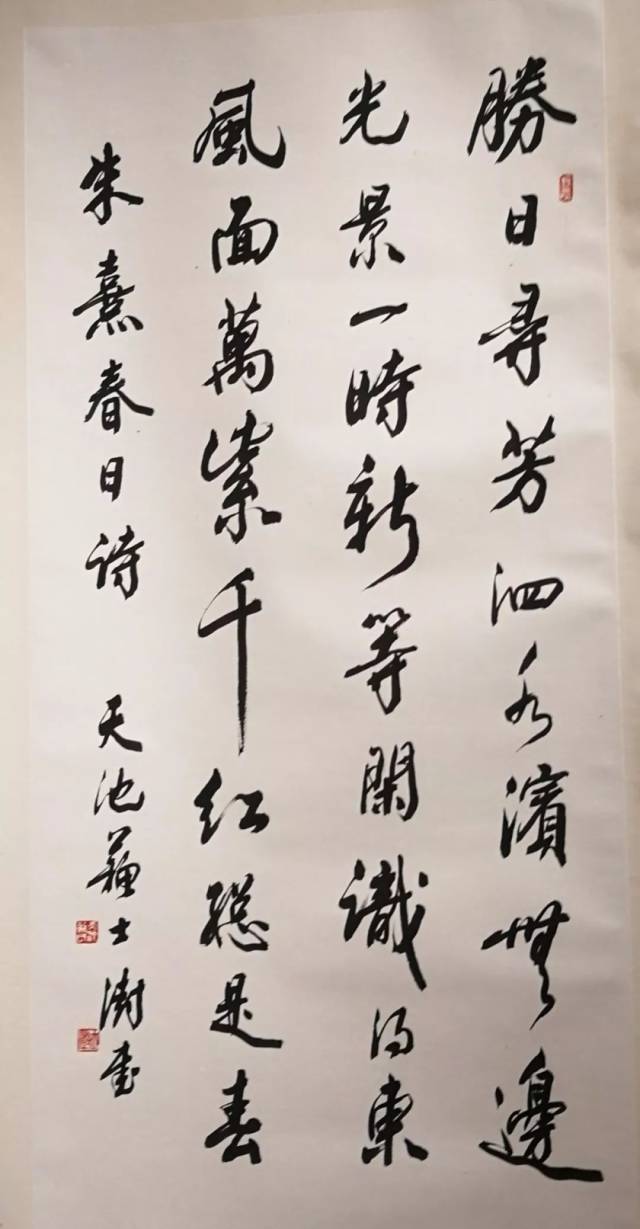 勝日尋芳泗水濱無邊
光景一時新等閑識得東
風面萬紫千紅總是春
朱熹春日詩 天池蘇士澍書